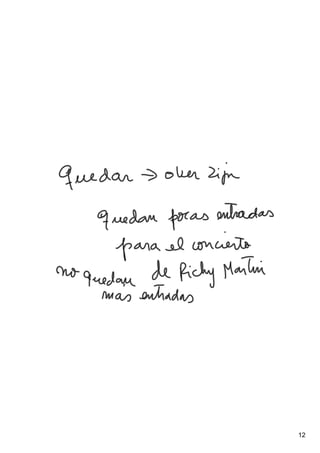 quedar → over zijn
quedan pocas entradas
para el concierto
de Ricky Martin
no quedan
mas entradas
12